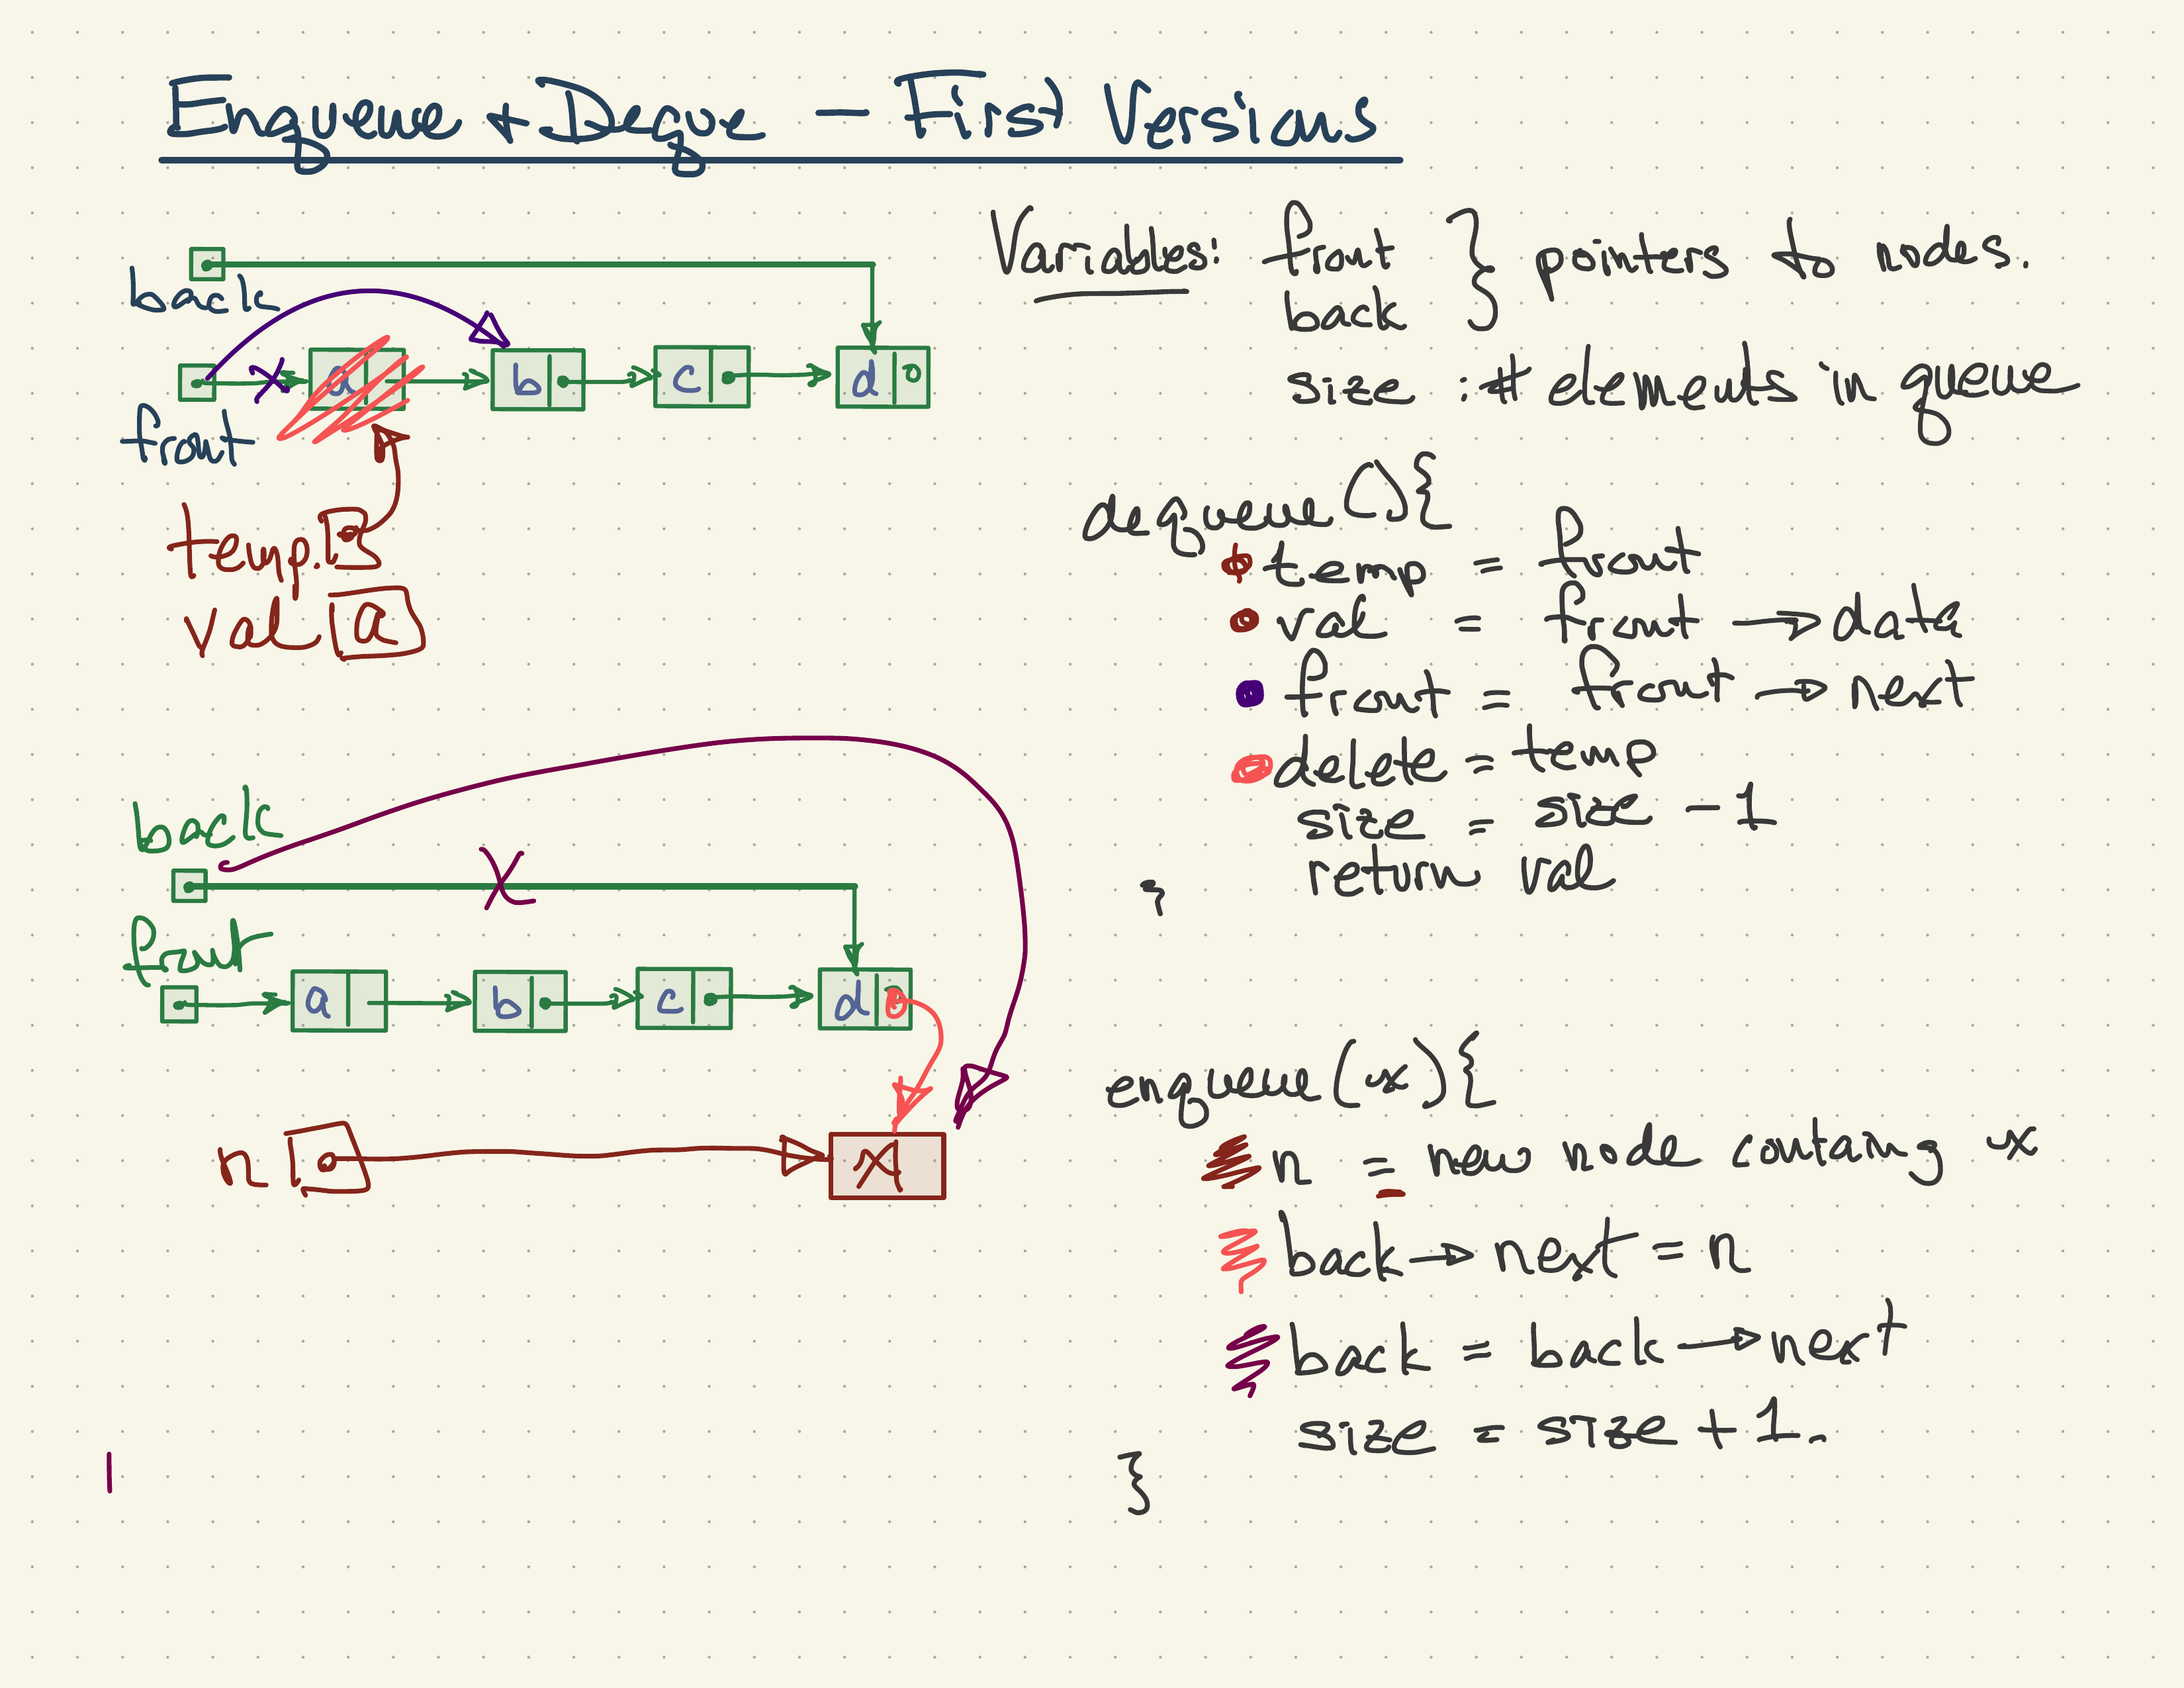 Enqueue + Deque - First Versions
back
a b c d
front
temp.
val a
Variables: front } pointers to nodes.
back
size : # elements in queue
dequeue(){
temp = front
val = front → data
front = front → next
delete = temp
size = size - 1
return val
}
back
front
a b c d
n x
enqueue(x){
n = new node containg x
back → next = n
back = back → next
size = size + 1.
}